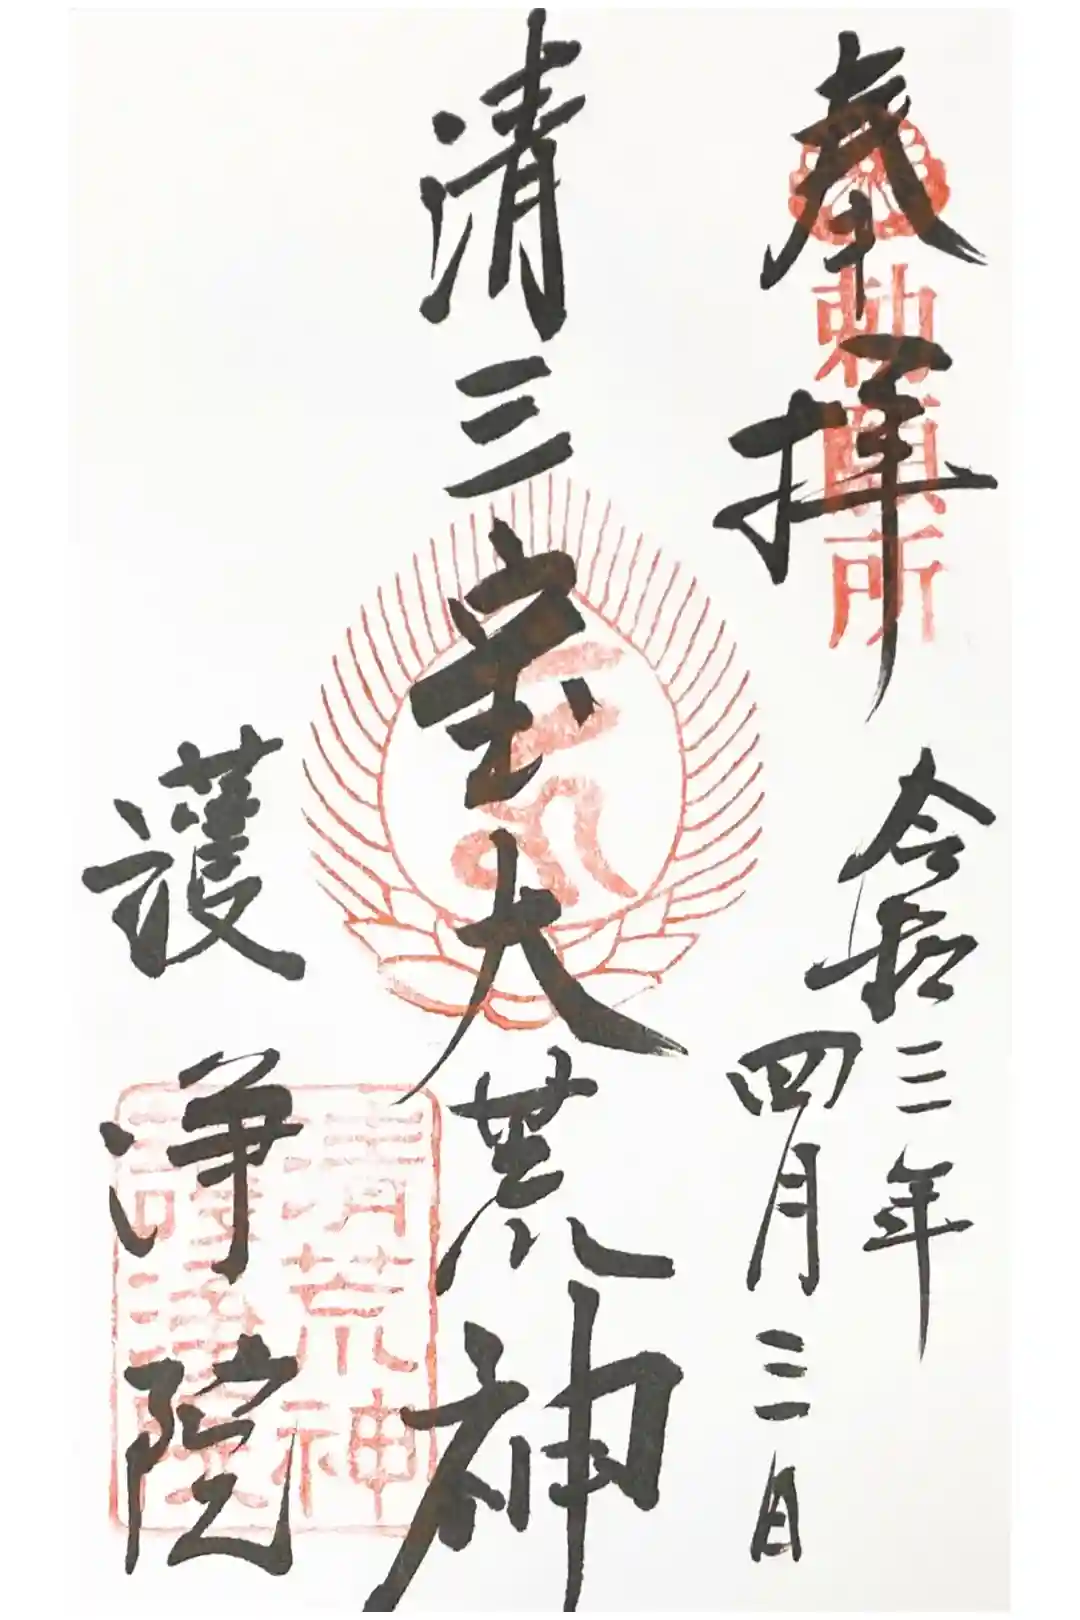 奉拝
勅願所
令和三年
四月三日
清三宝大荒神
護浄院
清荒神
護浄院